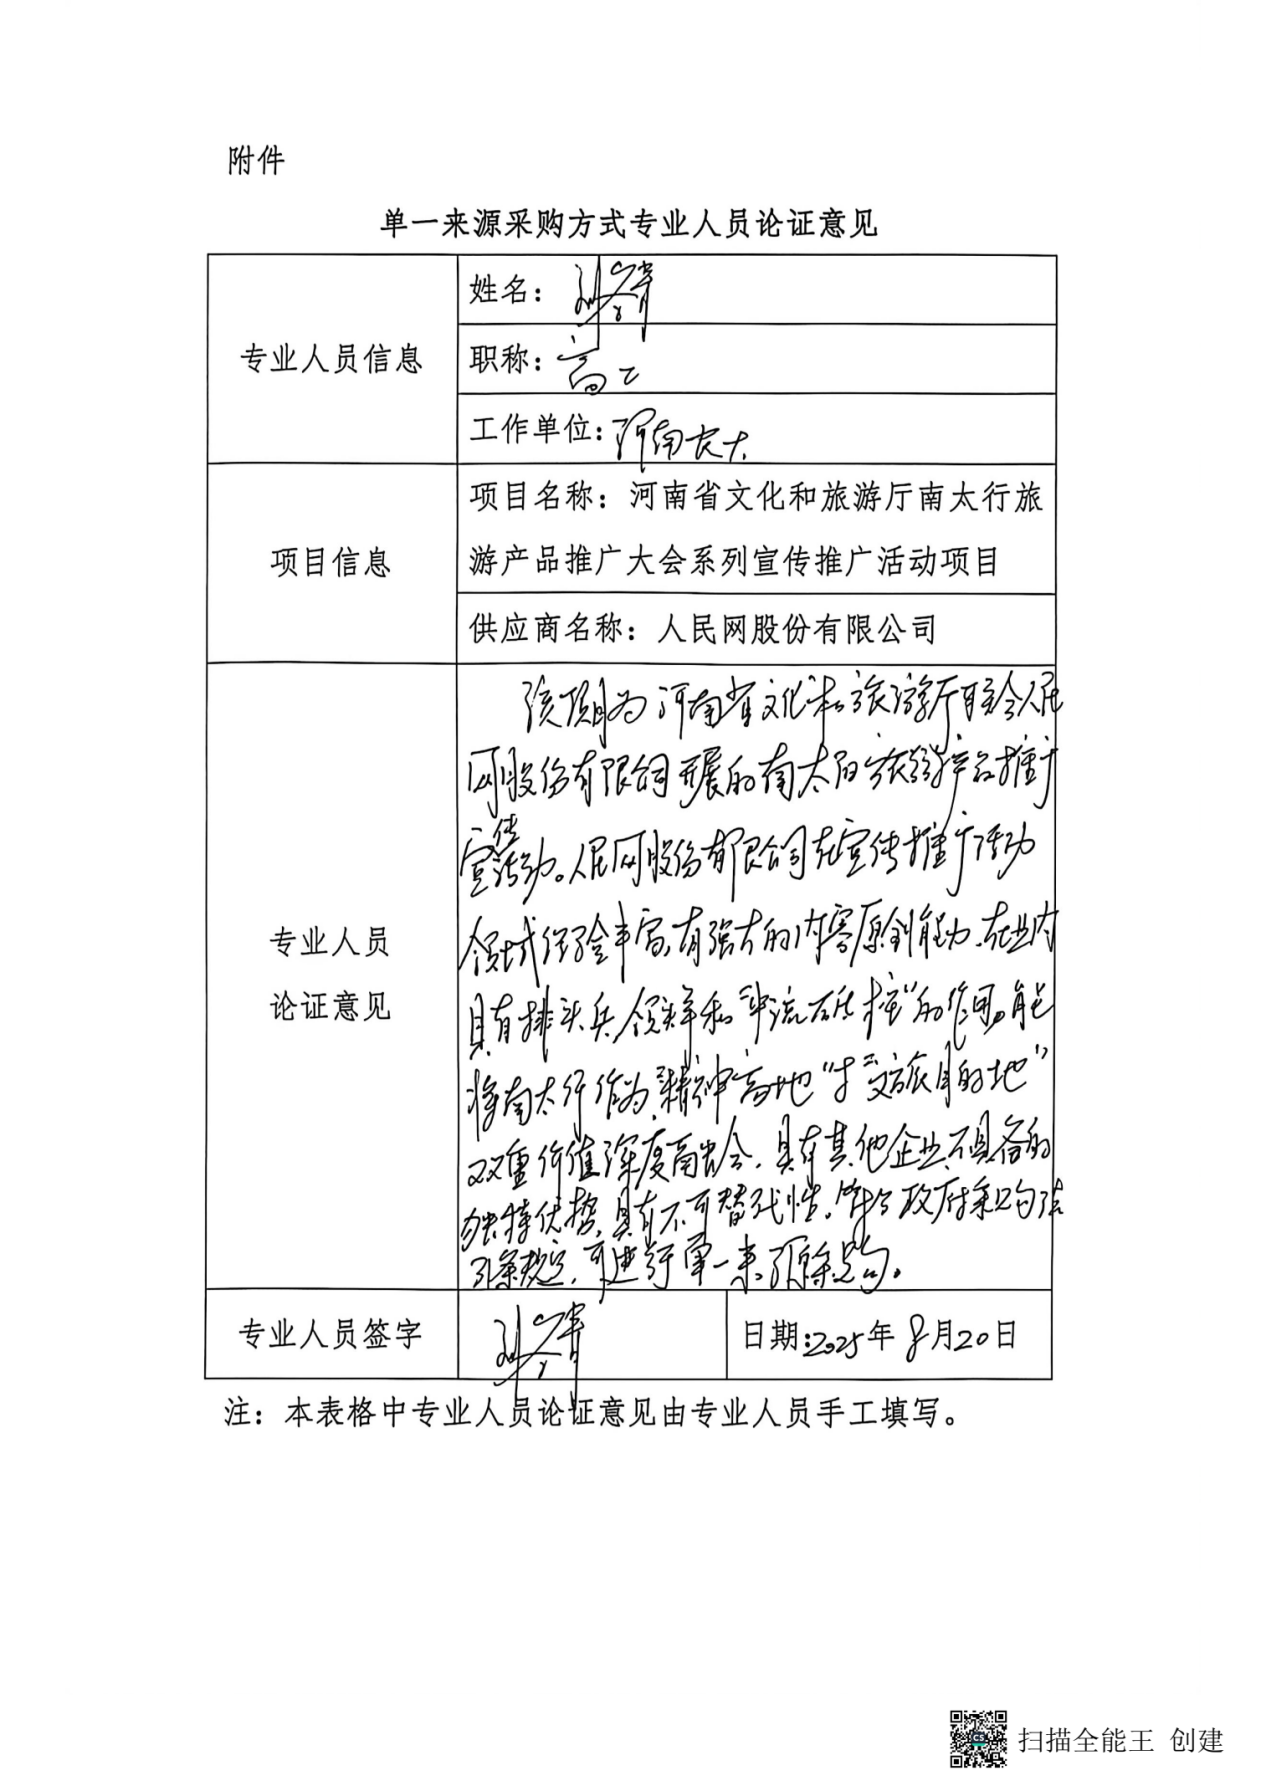 附件
单一来源采购方式专业人员论证意见
专业人员信息
姓名：刘
职称：高工
工作单位：河南农大
项目信息
项目名称：河南省文化和旅游厅南太行旅
游产品推广大会系列宣传推广活动项目
供应商名称：人民网股份有限公司
专业人员
论证意见
该项目为河南省文化和旅游厅联合人民
网股份有限公司开展的南太行旅游产品推广
宣传活动。人民网股份有限公司在宣传推广活动
领域经验丰富,有强大的内容原创能力、在业内
具有排头兵、领头羊和"中流砥柱"的作用。能
将南太行作为"精神高地"与"文旅目的地"
双重价值深度融合、具有其他企业不具备的
独特优势,具有不可替代性。符合政府采购法
31条规定,可进行单一来源采购。
专业人员签字
刘
日期:2025年8月20日
注：本表格中专业人员论证意见由专业人员手工填写。
扫描全能王 创建